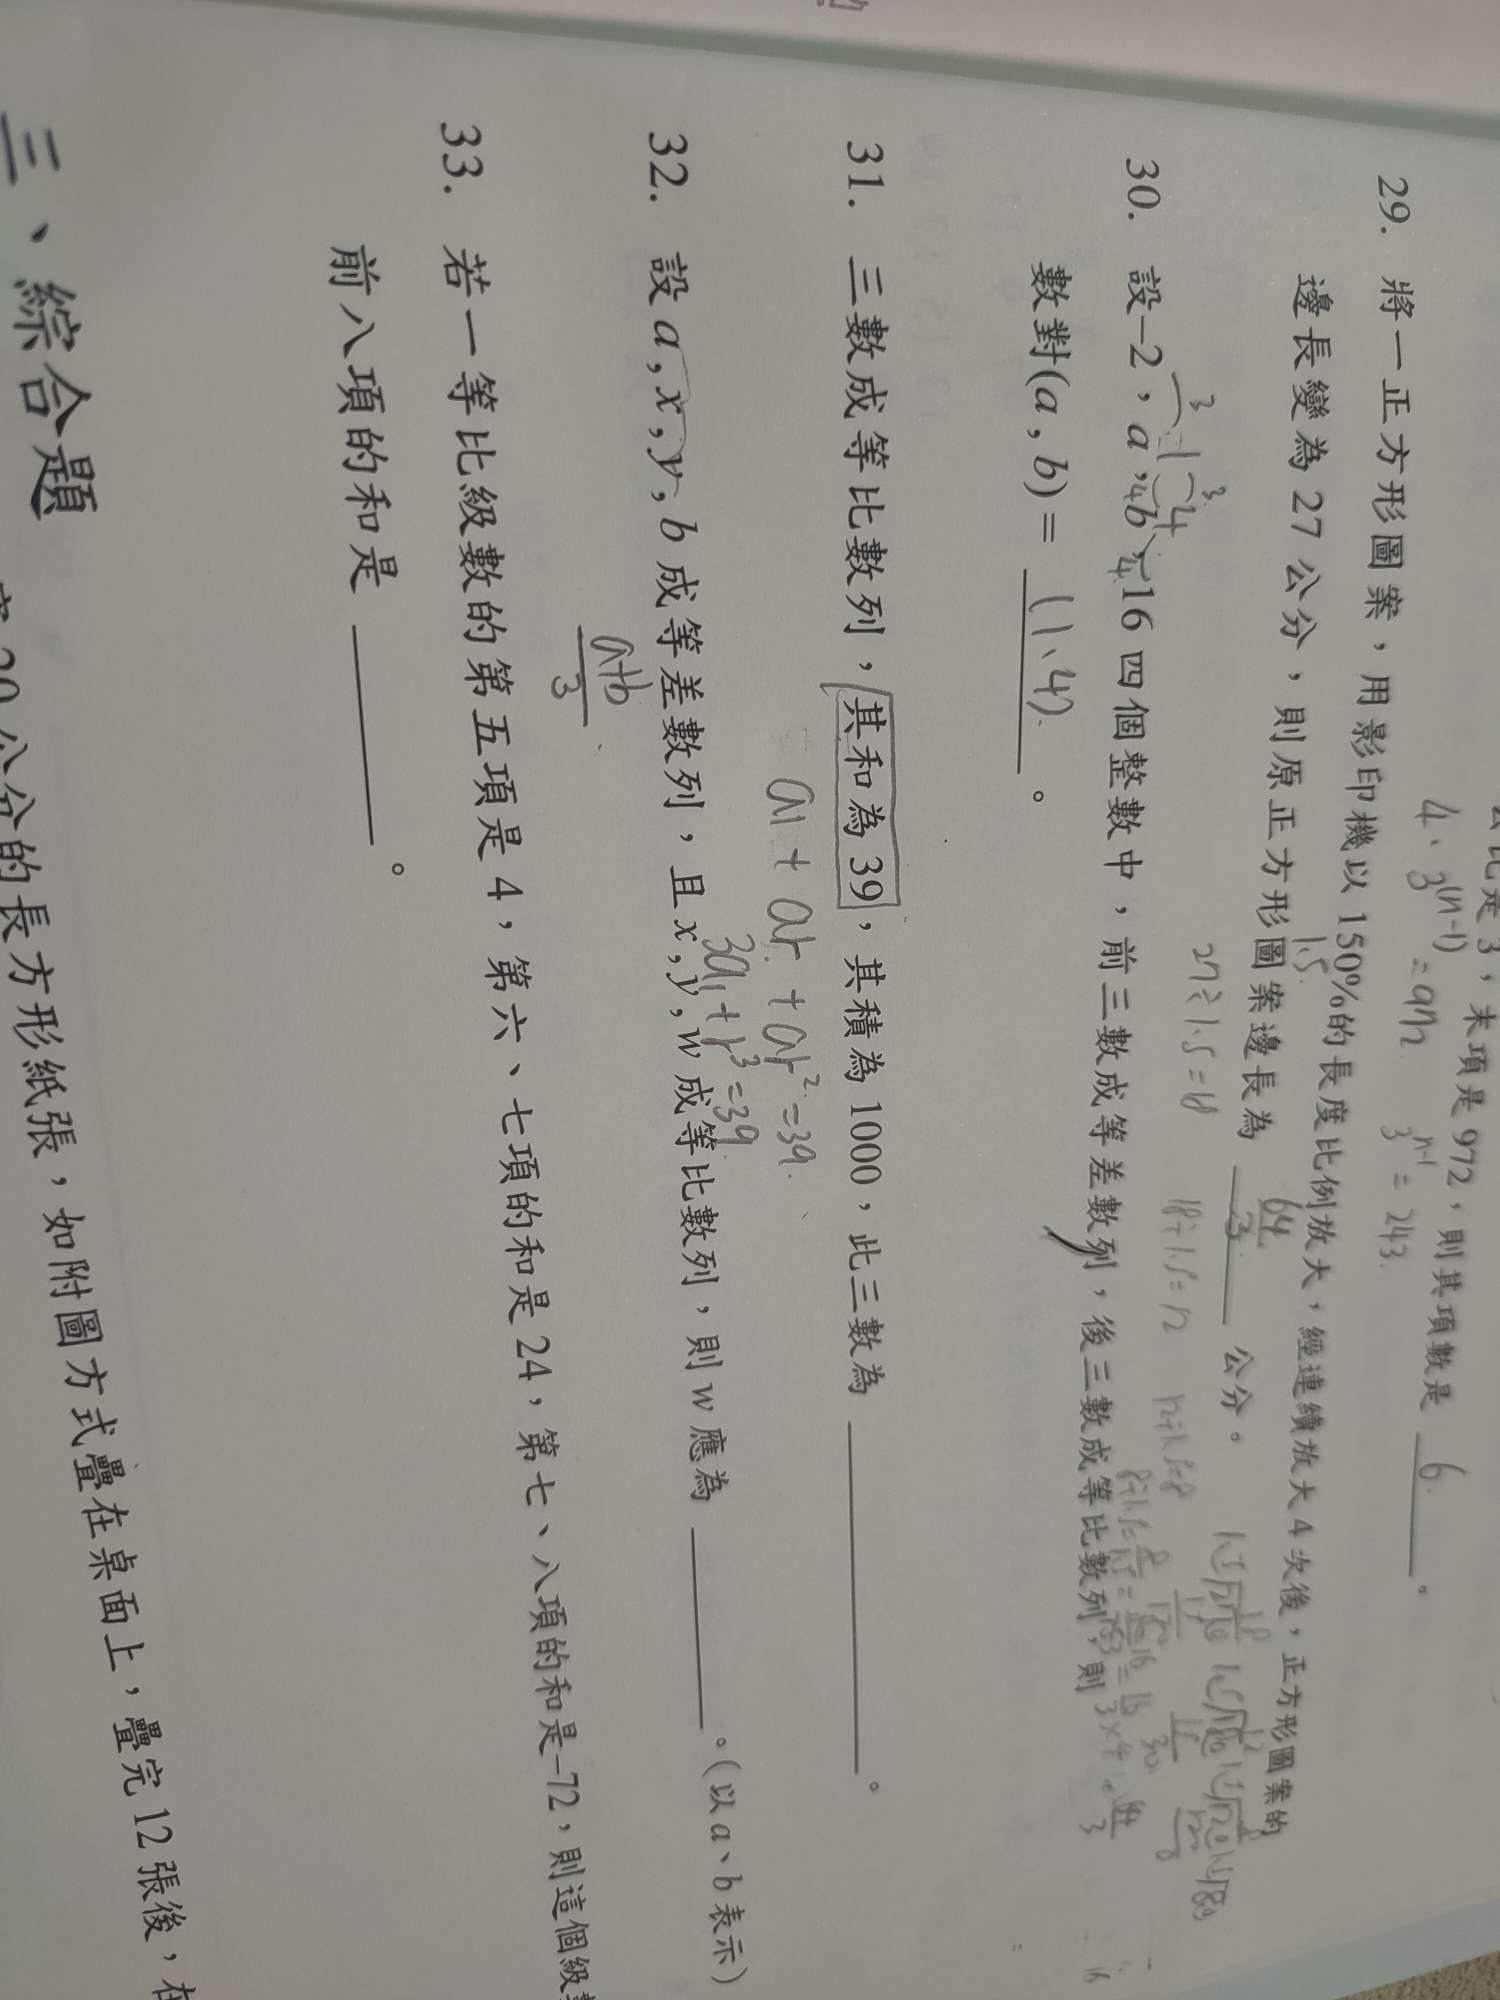 公比是 3，末項是 972，則其項數是 6 。
4．3⁽ⁿ⁻¹⁾ = 972 3ⁿ⁻¹ = 243
29. 將一正方形圖案，用影印機以 150%的長度比例放大，經連續放大 4 次後，正方形圖案的
1.5
邊長變為 27 公分，則原正方形圖案邊長為 公分。
27÷1.5=18 18÷1.5=12 12÷1.5=8
30. 設–2，a，b，16 四個整數中，前三數成等差數列，後三數成等比數列，則
數對(a, b) = (1、4) 。
31. 三數成等比數列，其和為 39，其積為 1000，此三數為 。
a1 + ar + ar² = 39
3a1 + r³ = 39
32. 設 a, x, y, b 成等差數列，且 x, y, w 成等比數列，則 w 應為 。(以 a、b 表示)
a+b
3
33. 若一等比級數的第五項是 4，第六、七項的和是 24，第七、八項的和是–72，則這個級
前八項的和是 。
三、綜合題
20 公分的長方形紙張，如附圖方式疊在桌面上，疊完 12 張後，在